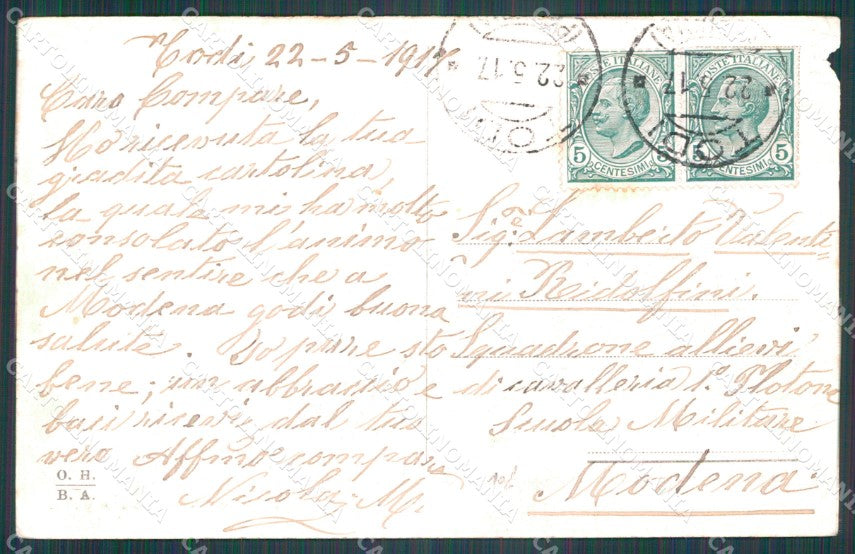 Todi, 22-5-1917
Caro Compare,
Ho ricevuta la tua
gradita cartolina,
la quale mi ha molto
consolato l'animo
nel sentire che a
Modena godi buona
salute. Io pure sto
bene; un abbraccio e
baci ricevi dal tuo
vero Affmo compare
Nicola M.
O. H.
B. A.
POSTE ITALIANE
POSTE ITALIANE
5 CENTESIMI 5
5 CENTESIMI 5
TODI
22.5.17
TODI
22.5.17
Sigr. Lamberto Valenti-
ni Ridolfini.
Squadrone allievi
di cavalleria 1º Plotone
Scuola Militare
Modena
CARTOLINOMANIA